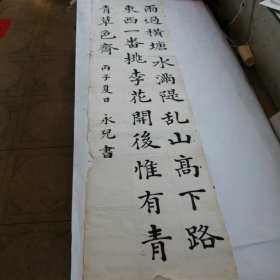 雨過橫塘水滿隄乱山高下路
東西一番桃李花開後惟有青
青草色齊 丙子夏日 永兒書